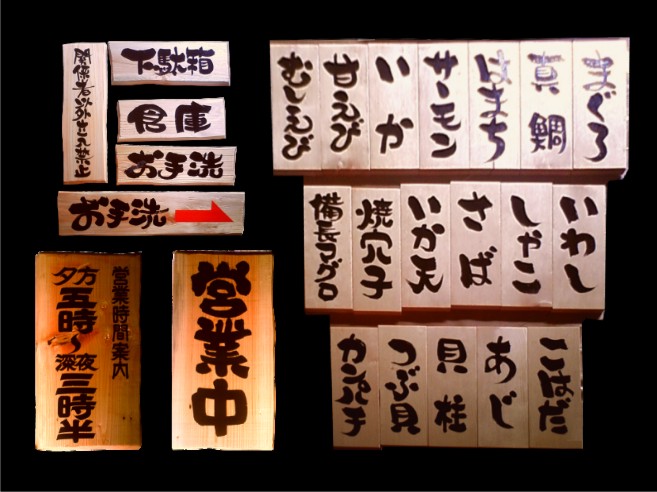 関係者以外立入禁止
下駄箱
倉庫
お手洗
お手洗
営業時間案内
夕方五時〜深夜三時半
営業中
まぐろ
真鯛
はまち
サーモン
いか
甘えび
むしえび
いわし
しゃこ
さば
いか天
焼穴子
備長マグロ
こはだ
あじ
貝柱
つぶ貝
カンパチ